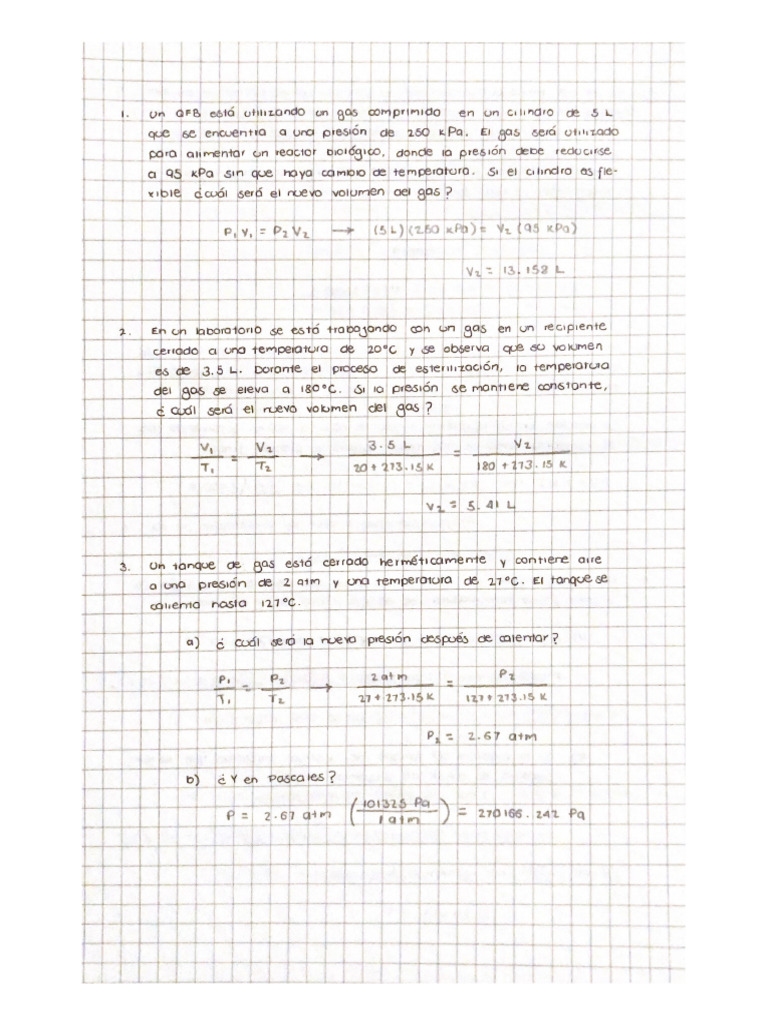 1. Un QFB está utilizando un gas comprimido en un cilindro de 5 L
que se encuentra a una presión de 250 kPa. El gas será utilizado
para alimentar un reactor biológico, donde la presión debe reducirse
a 95 kPa sin que haya cambio de temperatura. Si el cilindro es fle-
xible ¿cuál será el nuevo volumen del gas?
P₁ V₁ = P₂ V₂ → (5 L) (250 kPa) = V₂ (95 kPa)
V₂ = 13.158 L
2. En un laboratorio se está trabajando con un gas en un recipiente
cerrado a una temperatura de 20°C y se observa que su volumen
es de 3.5 L. Durante el proceso de esterilización, la temperatura
del gas se eleva a 180°C. Si la presión se mantiene constante,
¿cuál será el nuevo volumen del gas?
V₁/T₁ = V₂/T₂ → 3.5 L/20 + 273.15 K = V₂/180 + 273.15 K
V₂ = 5.41 L
3. Un tanque de gas está cerrado herméticamente y contiene aire
a una presión de 2 atm y una temperatura de 27°C. El tanque se
calienta hasta 127°C.
a) ¿cuál será la nueva presión después de calentar?
P₁/T₁ = P₂/T₂ → 2 atm/27 + 273.15 K = P₂/127 + 273.15 K
P₂ = 2.67 atm
b) ¿Y en Pascales?
P = 2.67 atm (101325 Pa/1 atm) = 270166.242 Pa